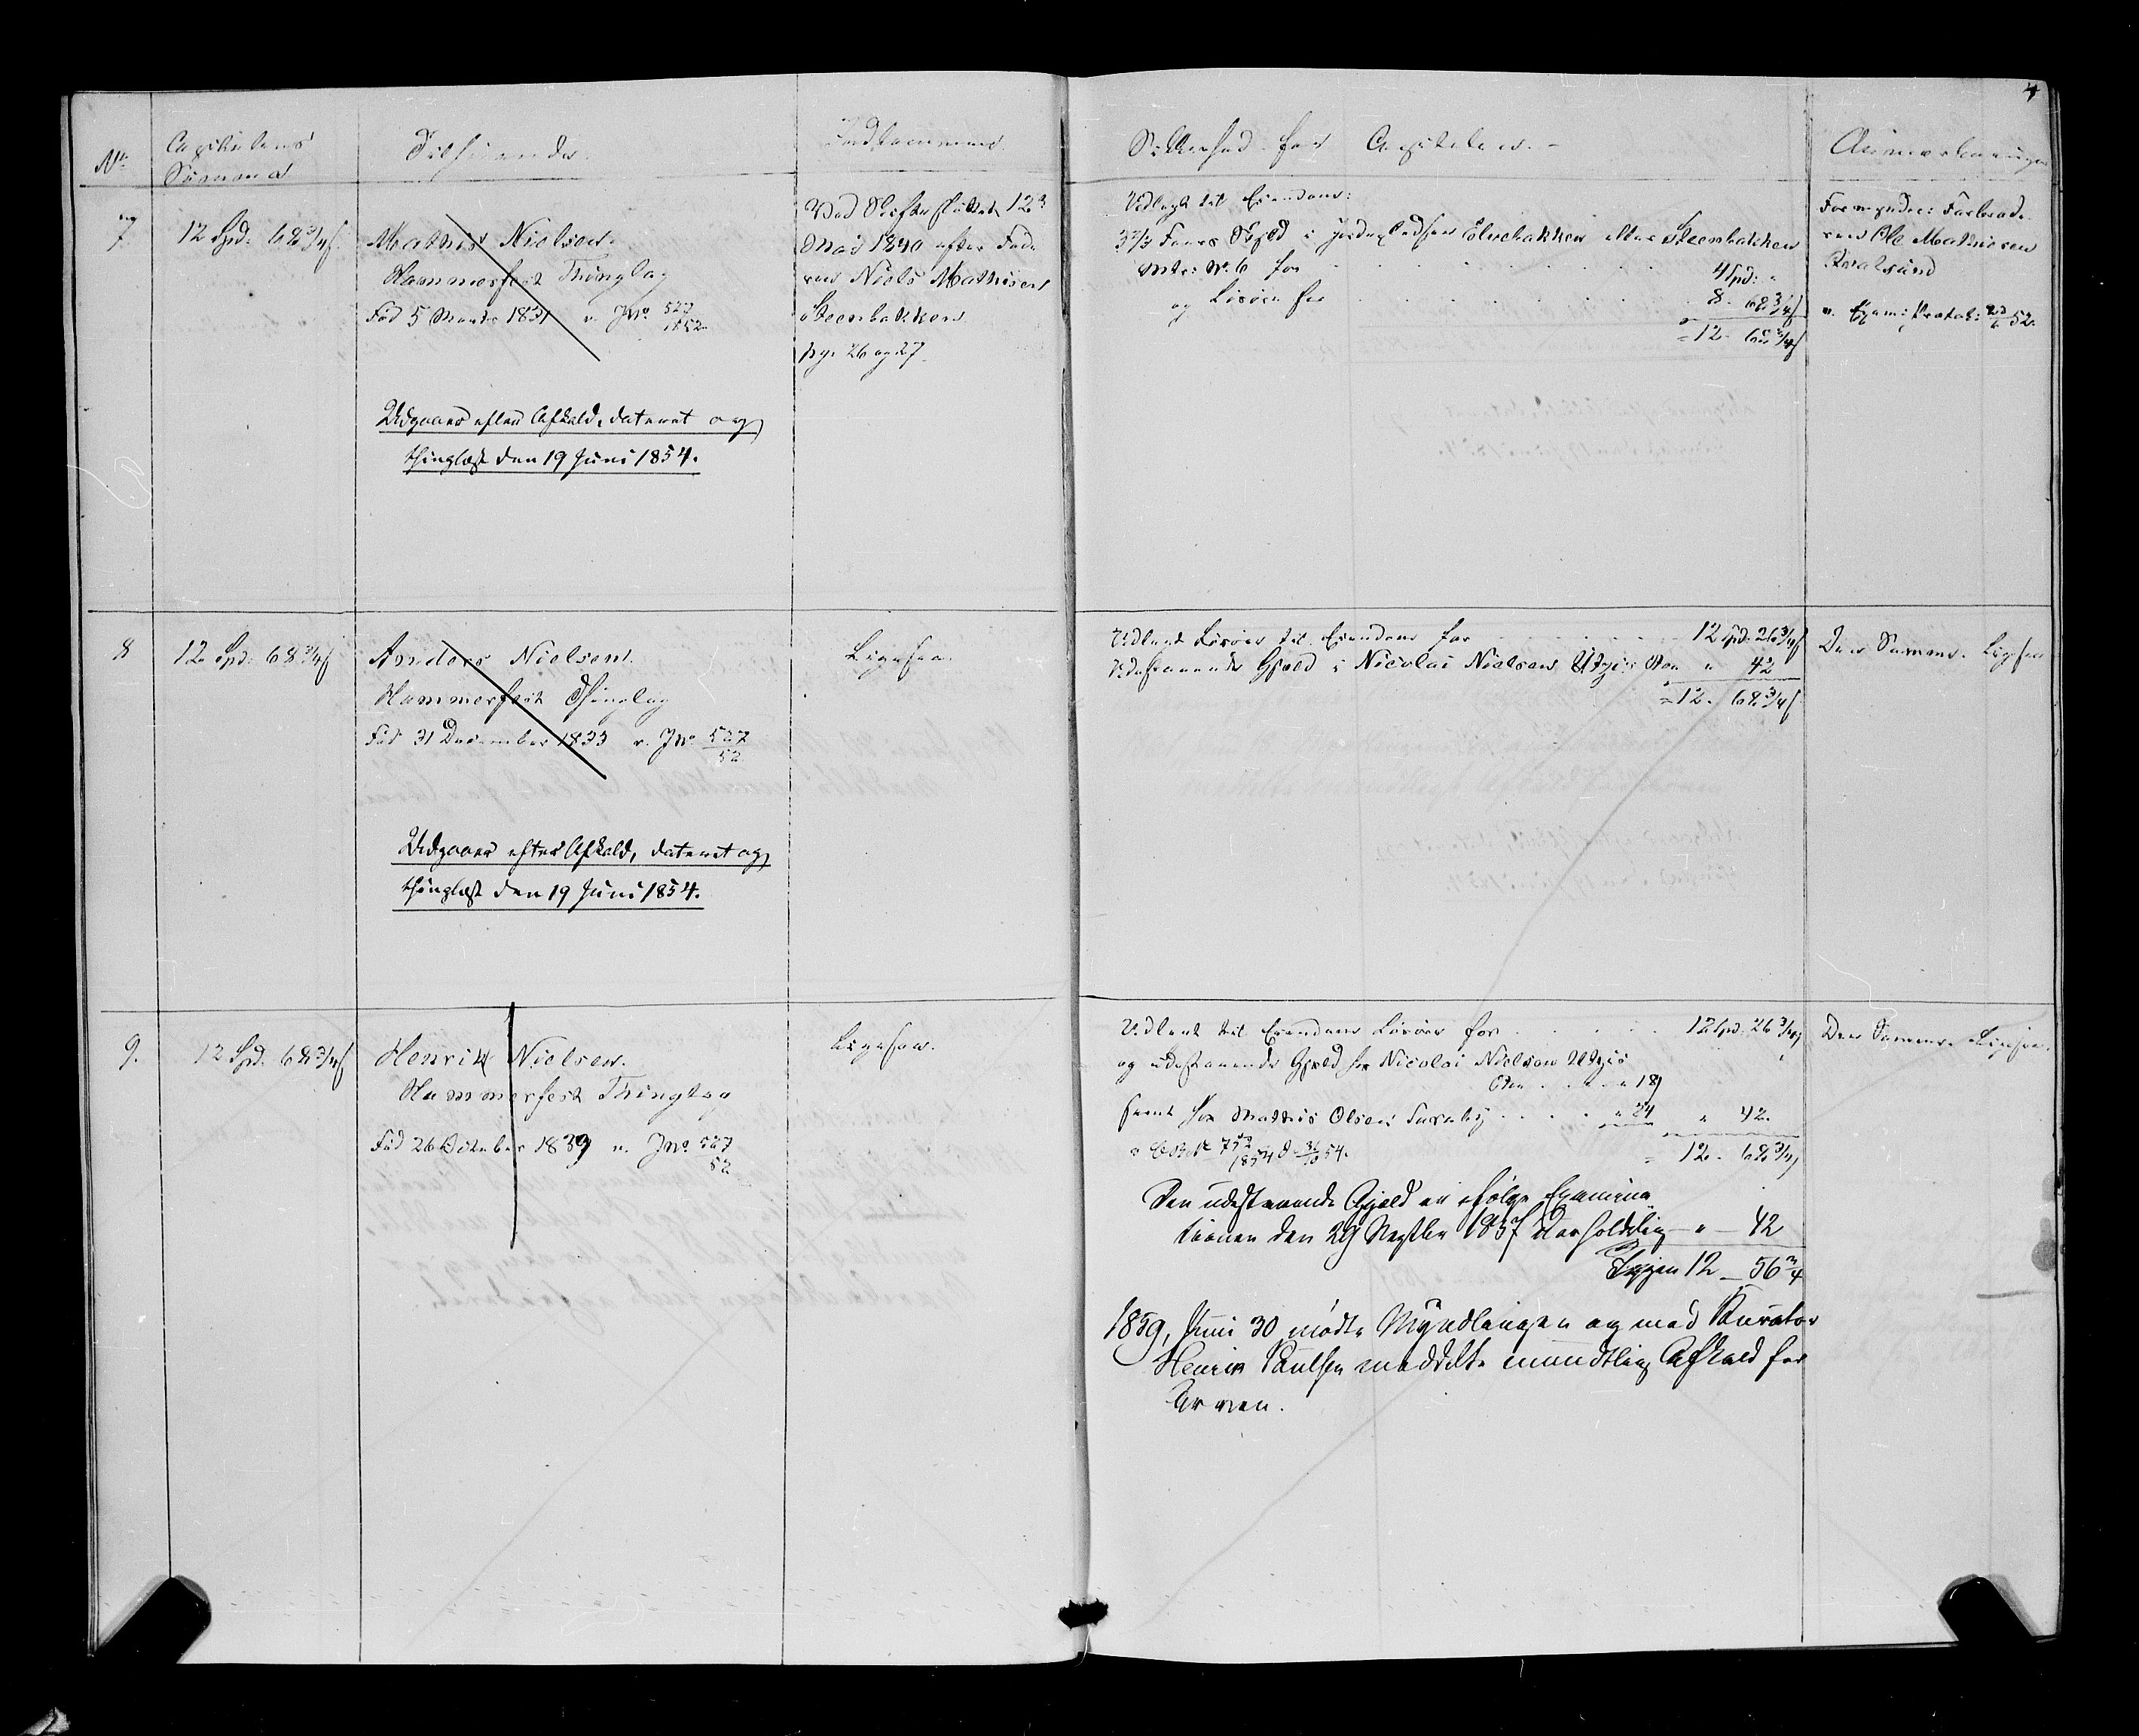 4
No
Capitalens
Størrelse
Tilhørende.
Indkommen.
Sikkerhed for Capitalen. -
Anmærkninger
7
12 Spd: 68 3/4 ſ
Mathis Nielsen.
Hammerfest Thinglag
Fød 5 Marts 1831 v. JNo. 527/1852
Udgaaer efter Afkald, dateret og
thinglæst den 19 Juni 1854.
Ved Skifte sluttet 12
Mai 1840 efter Fade-
ren Niels Mathisen
Steenbakken
pag. 26 og 27.
Udlagt til Eiendom:
Skyld i Jordepladsen eller Steenbakken
Mtr: No. 6 for 4 Spd: "
og Løsøre for 8. 68 3/4 ſ
= 12. 68 3/4 ſ
Formynder: Farbrode-
ren Ole Mathisen
Qvalsund
v. Exam: Protok: 52.
8
12 Spd: 68 3/4 ſ
Anders Nielsen.
Hammerfest Thinglag
Fød 31 December 1833 v. JNo. 527/52
Udgaaer efter Afkald, dateret og
thinglæst den 19 Juni 1854.
Ligesaa.
Udlagt Løsøre til Eiendom for 12 Spd: 26 3/4 ſ
Udestaaende Gjæld i Nicolai Nielsen " 42
= 12. 68 3/4 ſ
Den Samme. Ligesaa
9.
12 Spd. 68 3/4 ſ
Henrik Nielsen.
Hammerfest Thinglag
Fød 26 October 1839 v. JNo. 527/52
Ligesaa.
Udlagt til Eiendom Løsøre for 12 Spd. 26 3/4 ſ
og udestaaende Gjæld hos Nicolai Nielsen
" 18
samt hos Mathis Olsen " 24 " 42.
= 12. 68 3/4 ſ
Den udestaaende Gjæld er ifølge Examina-
tionen den 29 Septbr 1857 " 42
Igjen 12 56 3/4
1859, Juni 30 mødte Myndlingen og med Kurator
Henrik Paulsen meddelte mundtlig Afkald for
Arven.
Den Samme. Ligesaa.